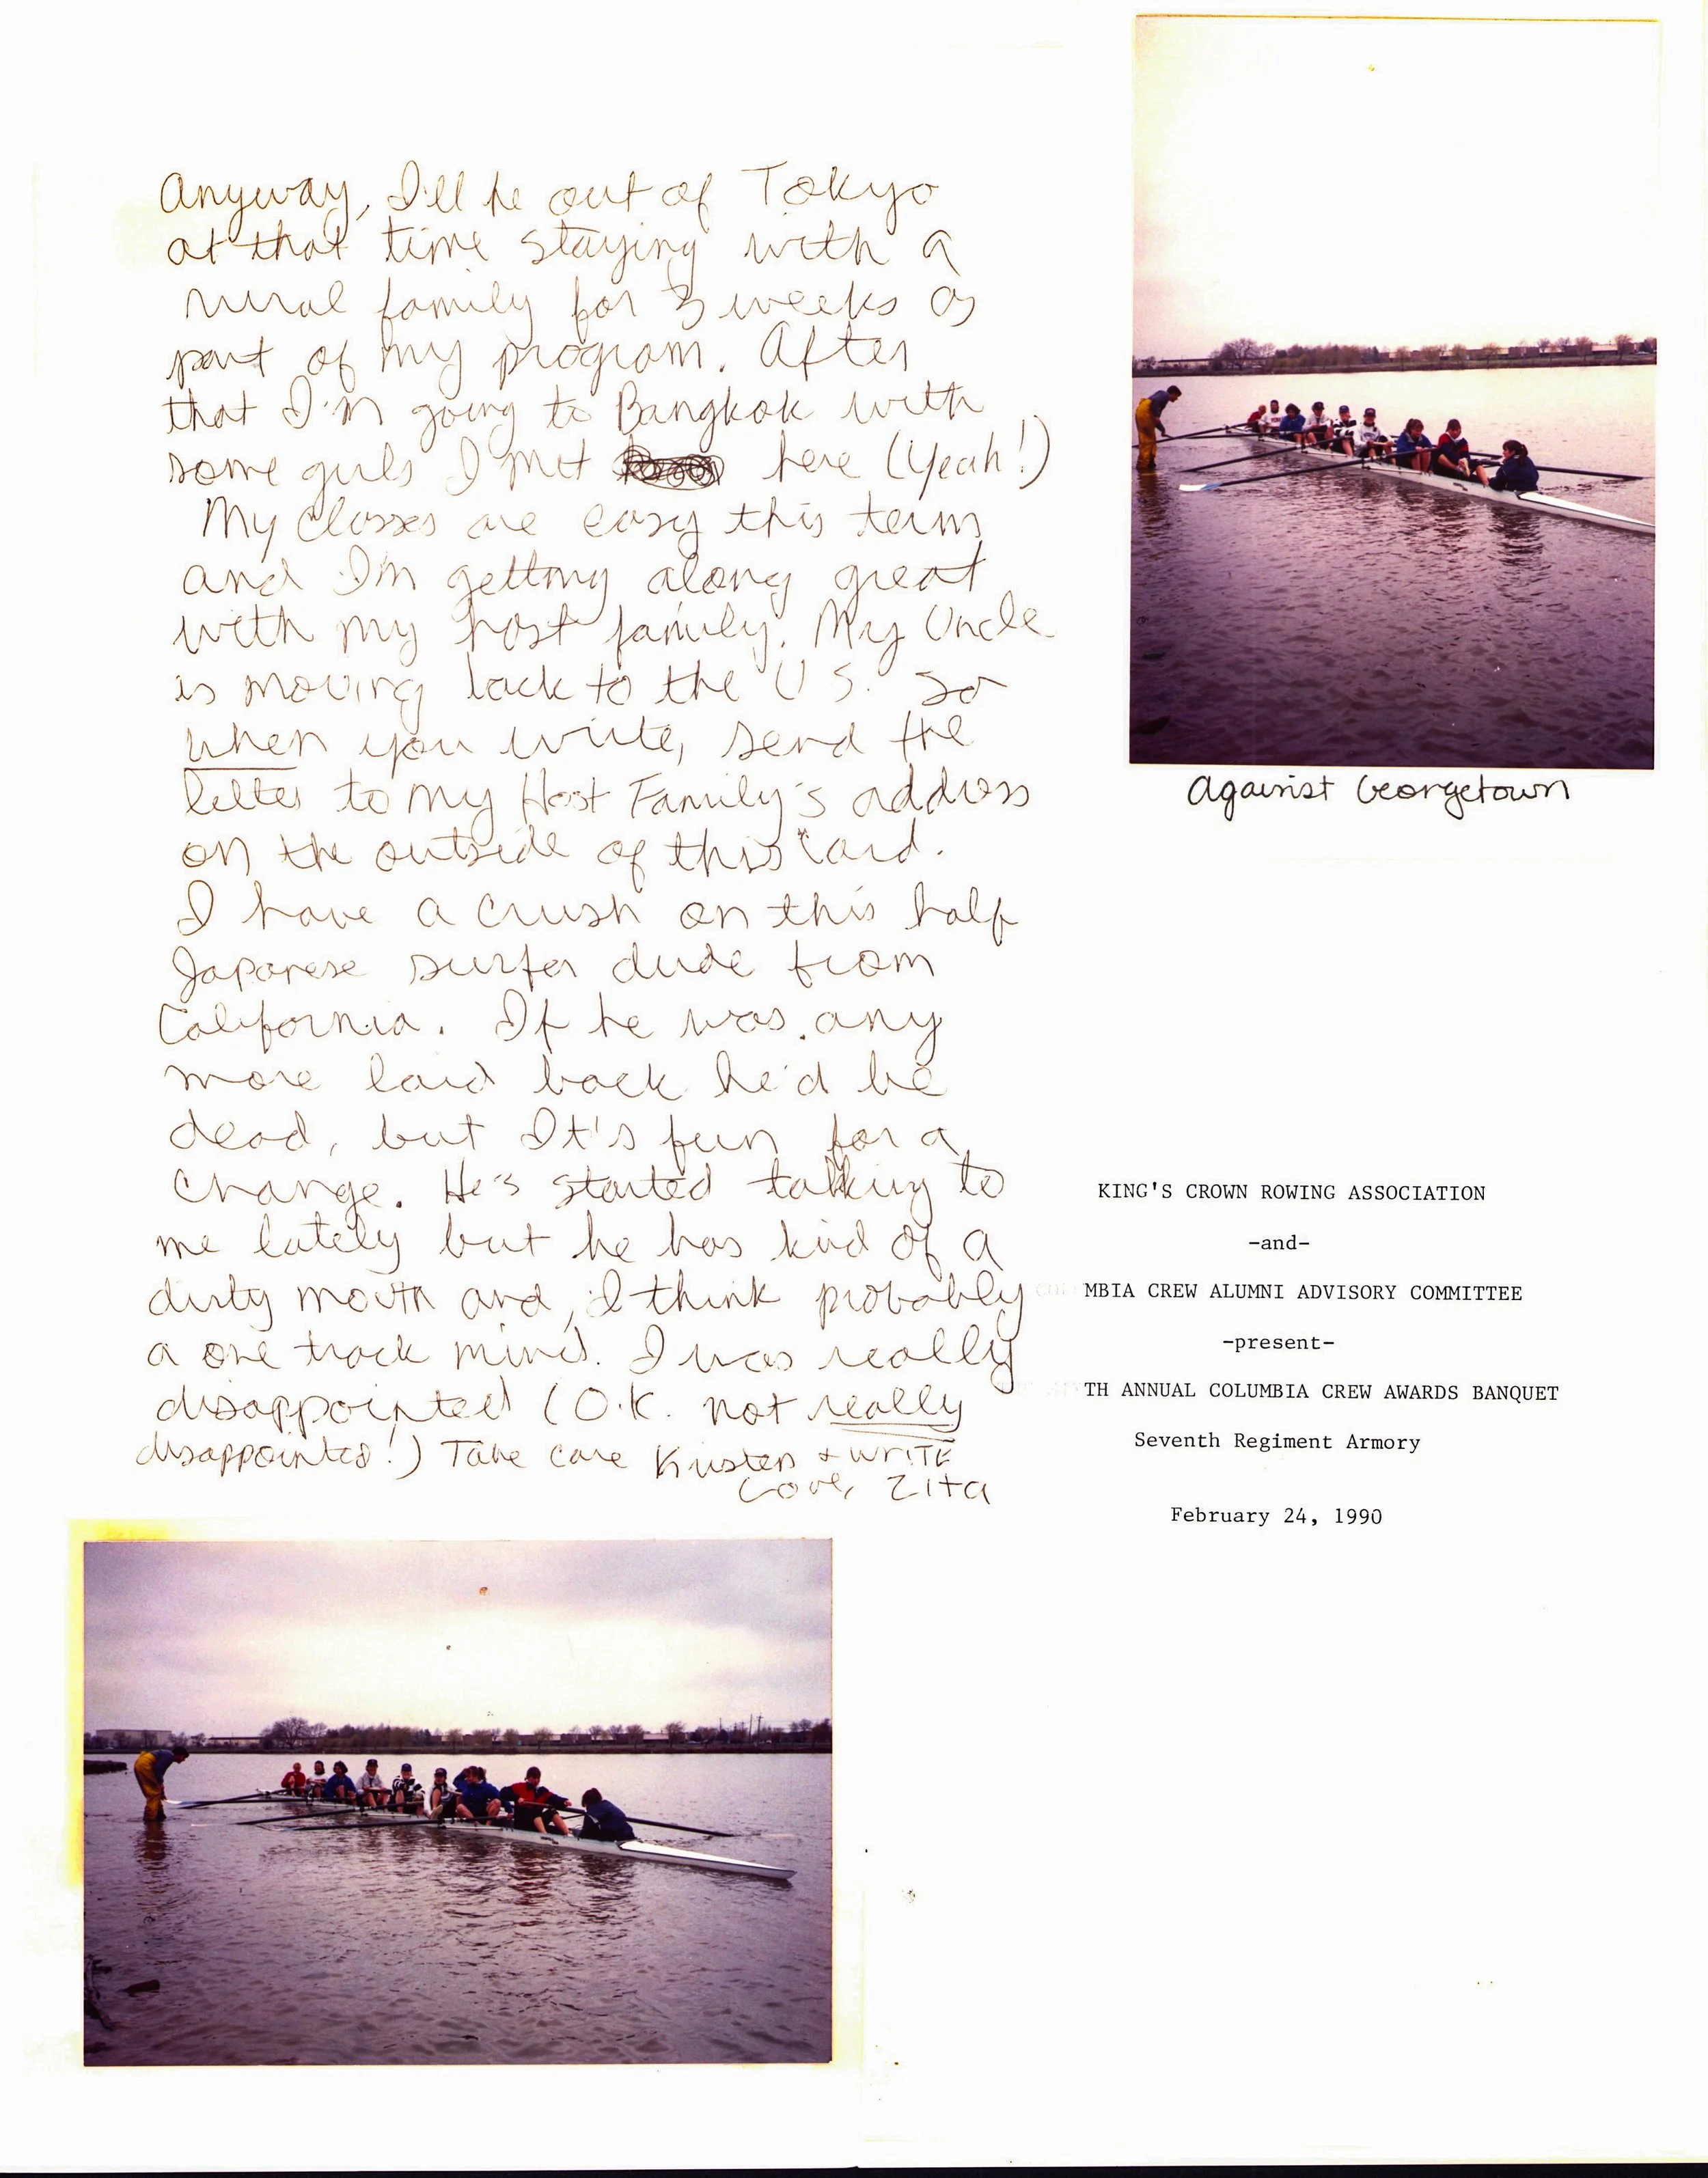 Anyway, I'll be out of Tokyo
at that time staying with a
rural family for 3 weeks as
part of my program. After
that I'm going to Bangkok with
some girls I met here (Yeah!)
My classes are easy this term
and I'm getting along great
with my host family. My Uncle
is moving back to the U S. so
when you write, send the
letter to my Host Family's address
on the outside of this card.
I have a crush on this half
Japanese surfer dude from
California. If he was any
more laid back he'd be
dead, but It's fun for a
change. He's started talking to
me lately but he has kind of a
dirty mouth and, I think probably
a one track mind. I was really
disappointed (O.K. not really
disappointed!) Take care Kristen + WRITE
Love, Zita
Against Georgetown
KING'S CROWN ROWING ASSOCIATION
-and-
MBIA CREW ALUMNI ADVISORY COMMITTEE
-present-
TH ANNUAL COLUMBIA CREW AWARDS BANQUET
Seventh Regiment Armory
February 24, 1990